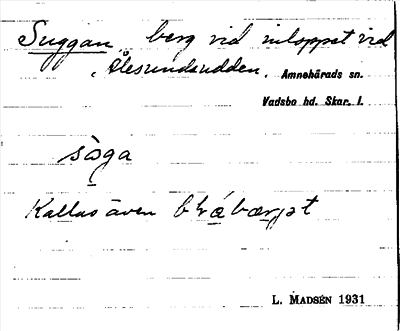 Suggan, berg vid inloppet vid
Ålesundsudden. Amnehärads sn.
Vadsbo hd. Skar. l.
sὰga
Kallas även blábærjət
L. MADSÉN 1931